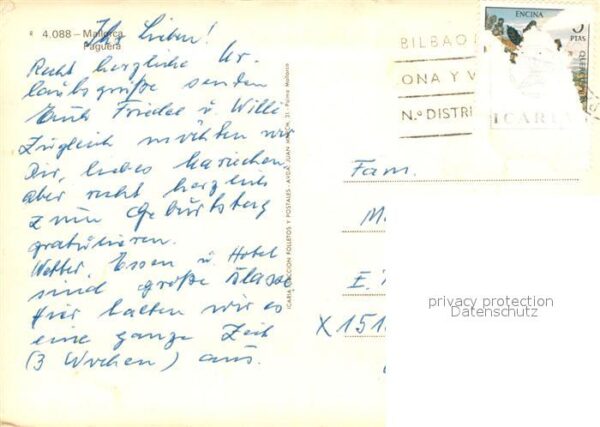 4.088 – Mallorca
Paguera
Ihr Lieben!
Recht herzliche Ur-
laubsgrüße senden
Euch Friedel u. Willi
Zugleich möchten wir
Dir, liebes Mariechen
aber recht herzlich
zum Geburtstag
gratulieren.
Wetter, Essen u. Hotel
sind große Klasse
hier halten wir es
eine ganze Zeit
(3 Wochen) aus.
BILBAO
ONA Y V
N.º DISTRI
ENCINA
PTAS
ICARIA
Fam.
M
E.
X 151
privacy protection
Datenschutz